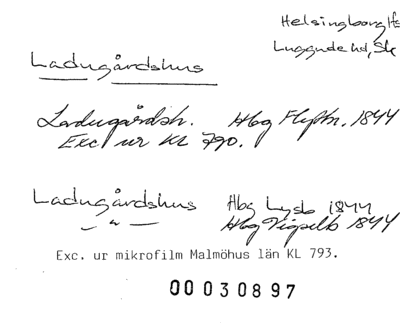 Helsingborg lfs
Luggude hd, Sk
Ladugårdshus
Ladugårdsh. Hbg Flyttn. 1844
Exc. ur KL 790.
Ladugårdshus Hbg Lysb 1844
— " — Hbg Vigselb 1844
Exc. ur mikrofilm Malmöhus län KL 793.
0030897